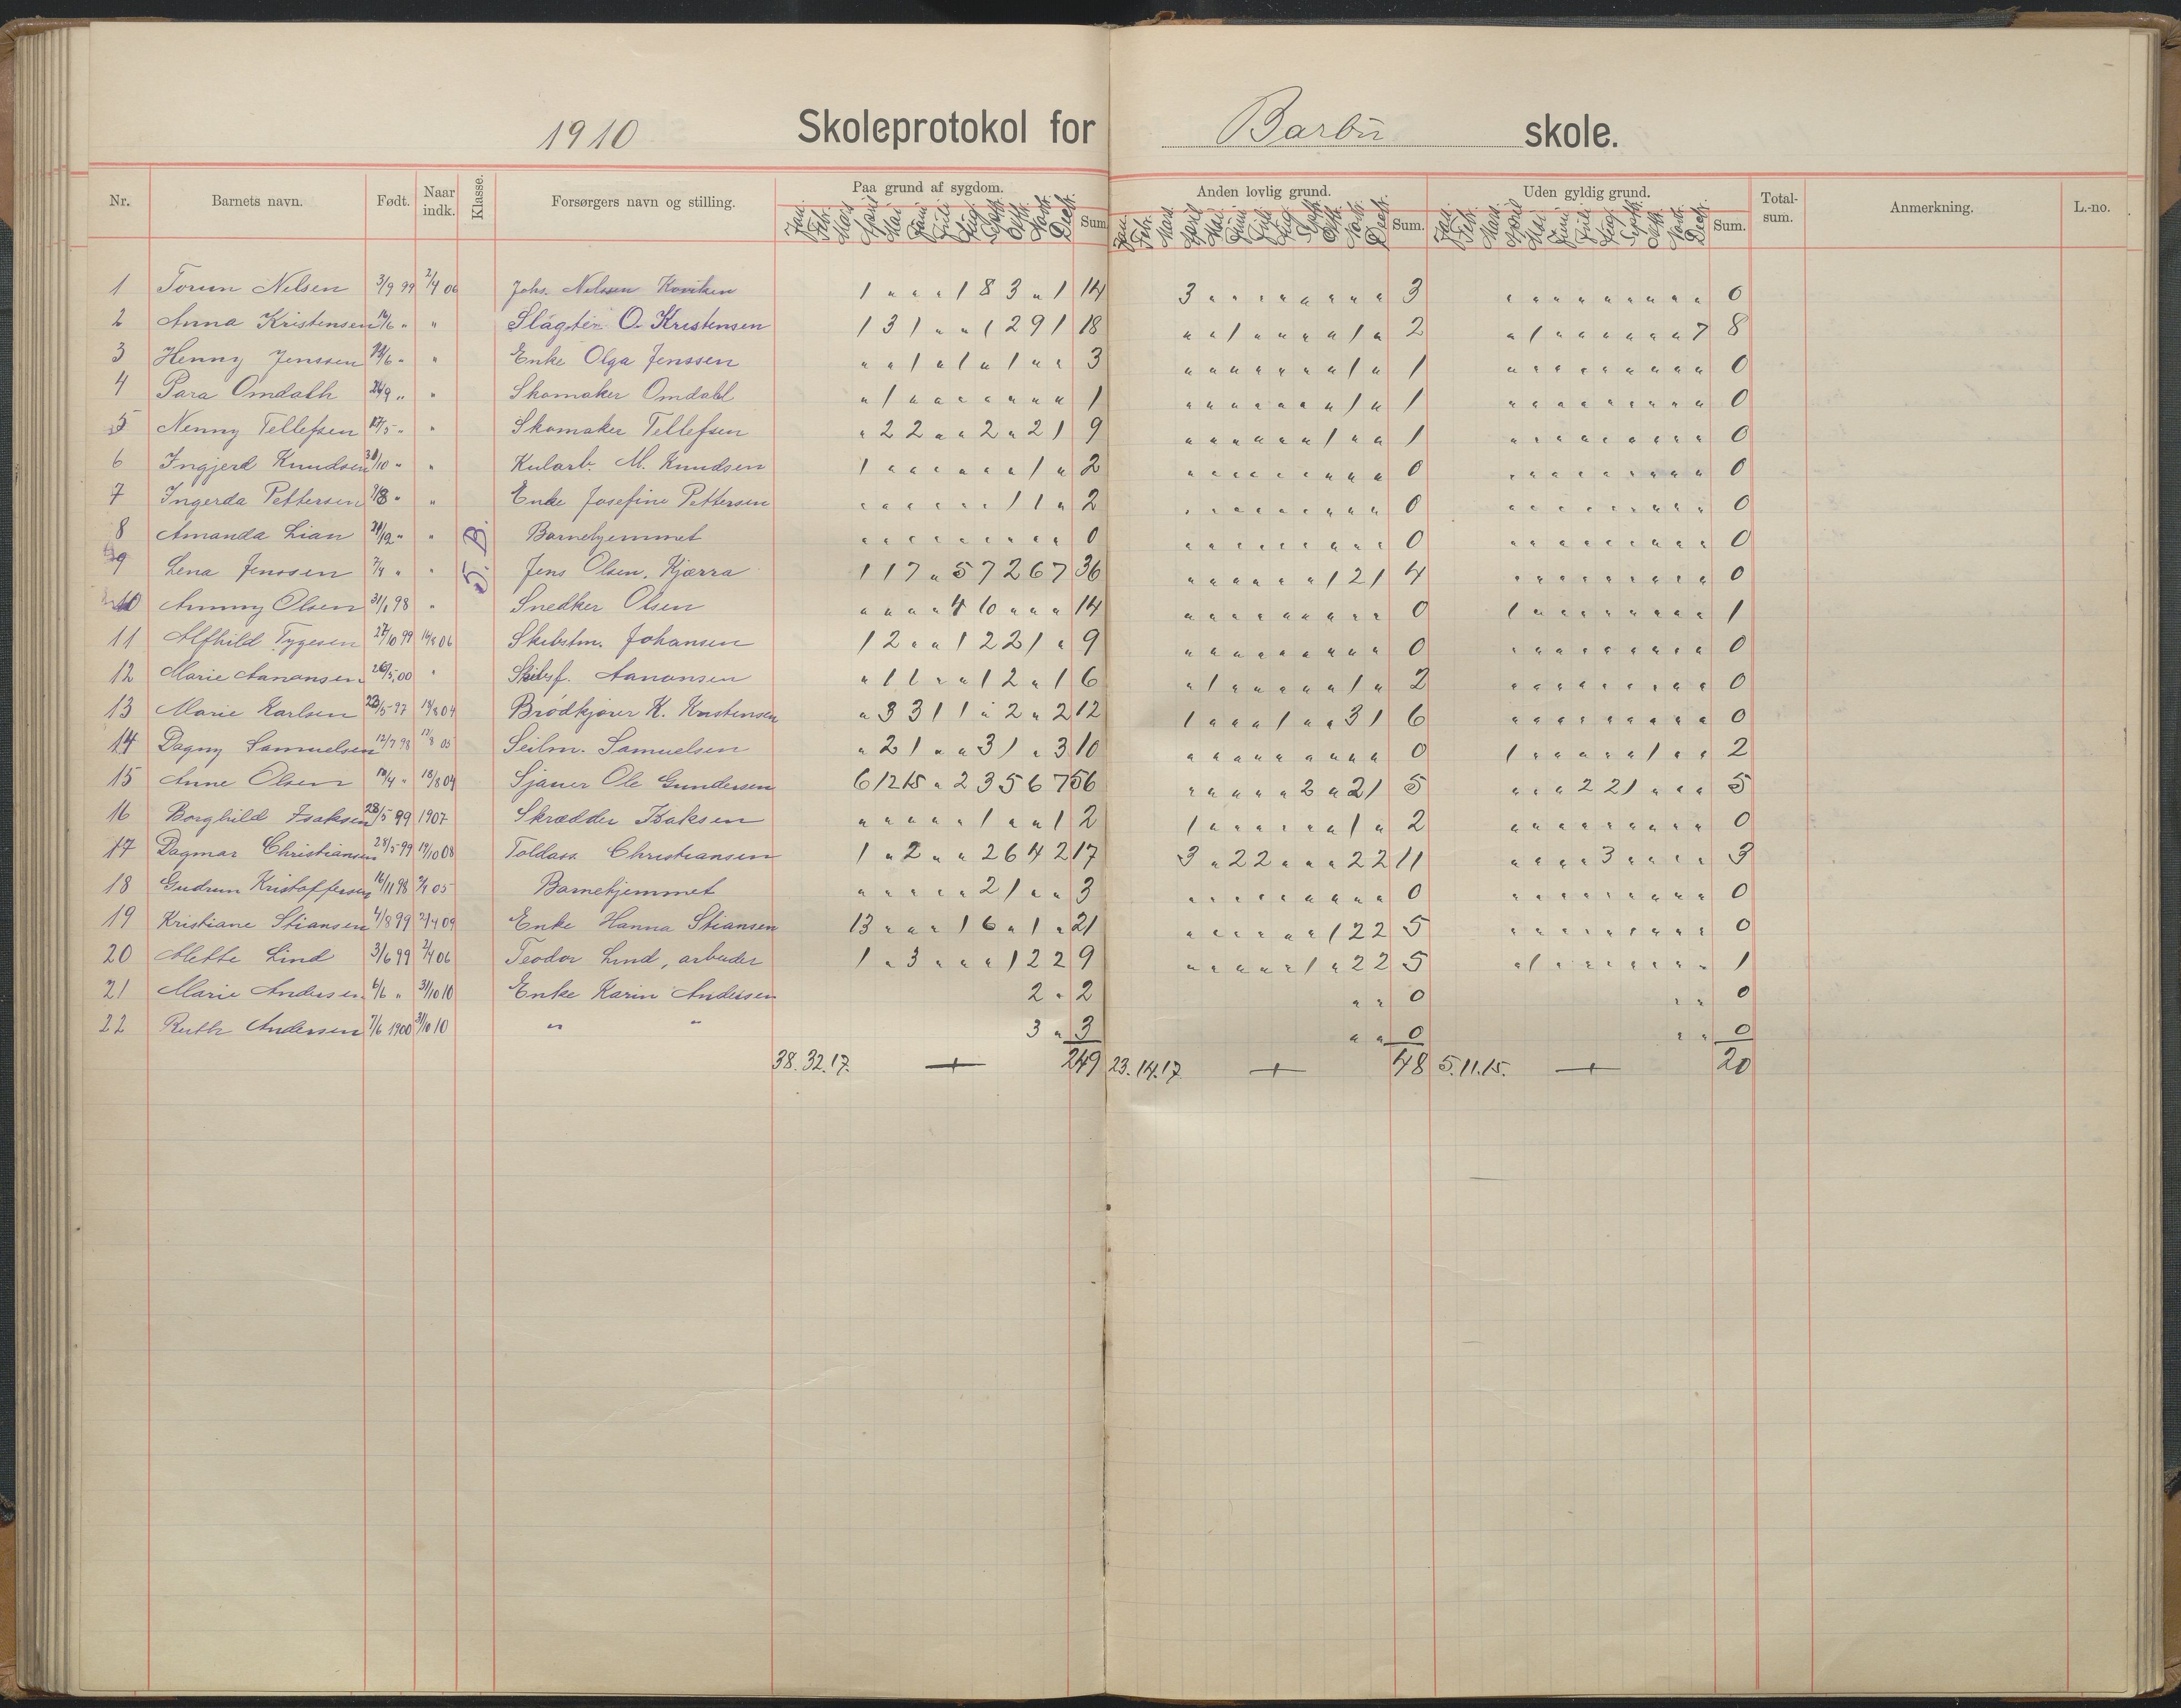 1910 Skoleprotokol for Barbu skole.
Nr. Barnets navn. Født. Naar indk. Klasse. Forsørgers navn og stilling. Paa grund af sygdom. Anden lovlig grund. Uden gyldig grund. Total-sum. Anmerkning. L.-no.
Jan. Febr. Mars April Mai Juni Juli Aug. Septbr. Oktbr. Novbr. Decbr. Sum Jan. Febr. Mars. April Mai. Juni Juli Aug Septbr. Oktbr. Novbr. Decbr. Sum. Jan. Febr. Mars. April Mai. Juni Juli Aug. Septbr. Oktbr. Novbr. Decbr. Sum.
1 Torun Nilsen 3/9 99 2/4 06 Johs. Nilssen 1 " " " 1 8 3 " 1 14 3 " " " " " " " " 3 " " " " " " " " " 0
2 Anna Kristensen " " Slagter O. Kristensen 1 3 1 " " 1 2 9 1 18 " " 1 " " " " 1 " 2 " 1 " " " " " " 7 8
3 Henny Jenssen " " Enke Olga Jenssen " " 1 " 1 " 1 " " 3 " " " " " " " 1 " 1 " " " " " " " " " 0
4 Omdalh 24/9 " " Skomaker Omdahl " 1 " " " " " " " 1 " " " " " " " 1 " 1 " " " " " " " " " 0
5 Nenny Tellefsen 17/5 " " Skomaker Tellefsen " 2 2 " " 2 " 2 1 9 " " " " " " 1 " " 1 " " " " " " " " " 0
6 Ingjerd Knudsen " " M. Knudsen 1 " " " " " " 1 " 2 " " " " " " " " " 0 " " " " " " " " " 0
7 Ingerda Pettersen " " Enke Josefine Pettersen " " " " " " 1 1 " 2 " " " " " " " " " 0 " " " " " " " " " 0
8 Amanda Lian " " 5. B. Barnehjemmet " " " " " " " " " 0 " " " " " " " " " 0 " " " " " " " " " 0
9 Lena Jenssen 7/4 " " Jens Olsen, Kjærra 1 1 7 " 5 7 2 6 7 36 " " " " " " 1 2 1 4 " " " " " " " " " 0
10 Ammy Olsen 31/1 98 " Snedker Olsen " " " " 4 10 " " " 14 " " " " " " " " " 0 1 " " " " " " " " 1
11 Alfhild Tygesen 27/10 99 06 Skibstm. Johansen 1 2 " " 1 2 2 1 " 9 " " " " " " " " " 0 " " " " " " " " " 0
12 Marie Aanonsen 26/5 00 " Skibsf. Aanonsen " 1 1 " " 1 2 " 1 6 " 1 " " " " " 1 " 2 " " " " " " " " " 0
13 Marie Karlsen 23/5 97 04 Brødkjører K. Kristensen " 3 3 1 1 " 2 " 2 12 1 " " " 1 " " 3 1 6 " " " " " " " " " 0
14 Dagny Samuelsen 12/7 98 05 Seilm. Samuelsen " 2 1 " " 3 1 " 3 10 " " " " " " " " " 0 1 " " " " " 1 " " 2
15 Anne Olsen " 18/8 04 Sjauer Ole Gundersen 6 12 15 " 2 3 5 6 7 56 " " " " " 2 " 2 1 5 " " " 2 2 1 " " " 5
16 Borghild Isaksen 28/5 99 1907 Skrædder Isaksen " " " " " 1 " " 1 2 1 " " " " " " 1 " 2 " " " " " " " " " 0
17 Dagmar Christiansen 23/5 99 14/10 08 Toldass. Christiansen 1 " 2 " " 2 6 4 2 17 3 " 2 2 " " " 2 2 11 " " " " 3 " " " " 3
18 Gudrun Kristoffersen 16/11 98 05 Barnehjemmet " " " " " 2 1 " " 3 " " " " " " " " " 0 " " " " " " " " " 0
19 Kristiane Stiansen 4/8 99 2/4 09 Enke Hanna Stiansen 13 " " " 1 6 " 1 " 21 " " " " " " 1 2 2 5 " " " " " " " " " 0
20 Mette Lind 3/6 99 2/4 06 Teodor Lind, arbeider 1 " 3 " " " 1 2 2 9 " " " " " 1 " 2 2 5 " 1 " " " " " " " 1
21 Marie Andersen 6/6 " 31/10 10 Enke Karin Andersen 2 " 2 " " 0 " " 0
22 Ruth Andersen 7/6 1900 31/10 10 " " 3 " 3 " " 0 " " 0
38. 32. 17. 249 23. 14. 17 48 5. 11. 15. 20